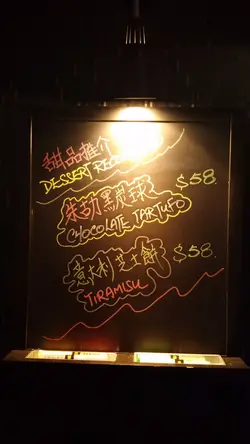 甜品推介
DESSERT RECO
朱古力黑炭球
$58.
CHOCOLATE TARTUFO
意大利芝士餅
$58.
TIRAMISU